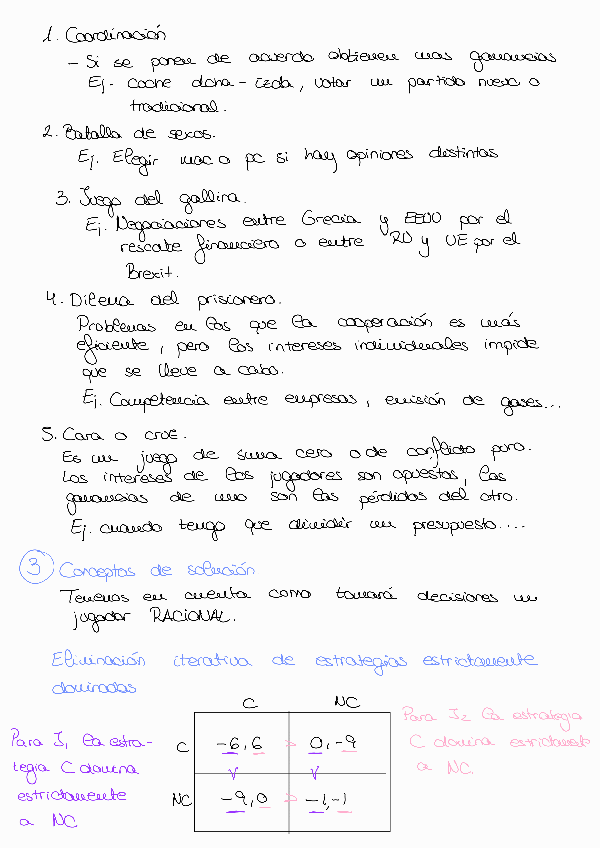 1. Coordinación
- Si se ponen de acuerdo obtienen mas ganancias
Ej- coche dcha-izda, votar un partido nuevo o
tradicional.
2. Batalla de sexos.
Ej. Elegir mac o pc si hay opiniones distintas
3. Juego del gallina.
Ej. Negociaciones entre Grecia y EEUU por el
rescate financiero o entre RU y UE por el
Brexit.
4. Dilema del prisionero.
Problemas en los que la cooperación es más
eficiente, pero los intereses individuales impide
que se lleve a cabo.
Ej. Competencia entre empresas, emisión de gases...
5. Cara o cruz.
Es un juego de suma cero o de conflicto puro.
Los intereses de los jugadores son opuestos, las
ganancias de uno son las pérdidas del otro.
Ej. cuando tengo que dividir un presupuesto....
3 Conceptos de solución
Tenemos en cuenta como tomará decisiones un
jugador RACIONAL.
Eliminación iterativa de estrategias estrictamente
dominadas
C NC
C -6, 6 > 0, -9
v v
NC -9, 0 > -1, -1
Para J1 la estra-
tegia C domina
estrictamente
a NC
Para J2 la estrategia
C domina estrictamente
a NC.